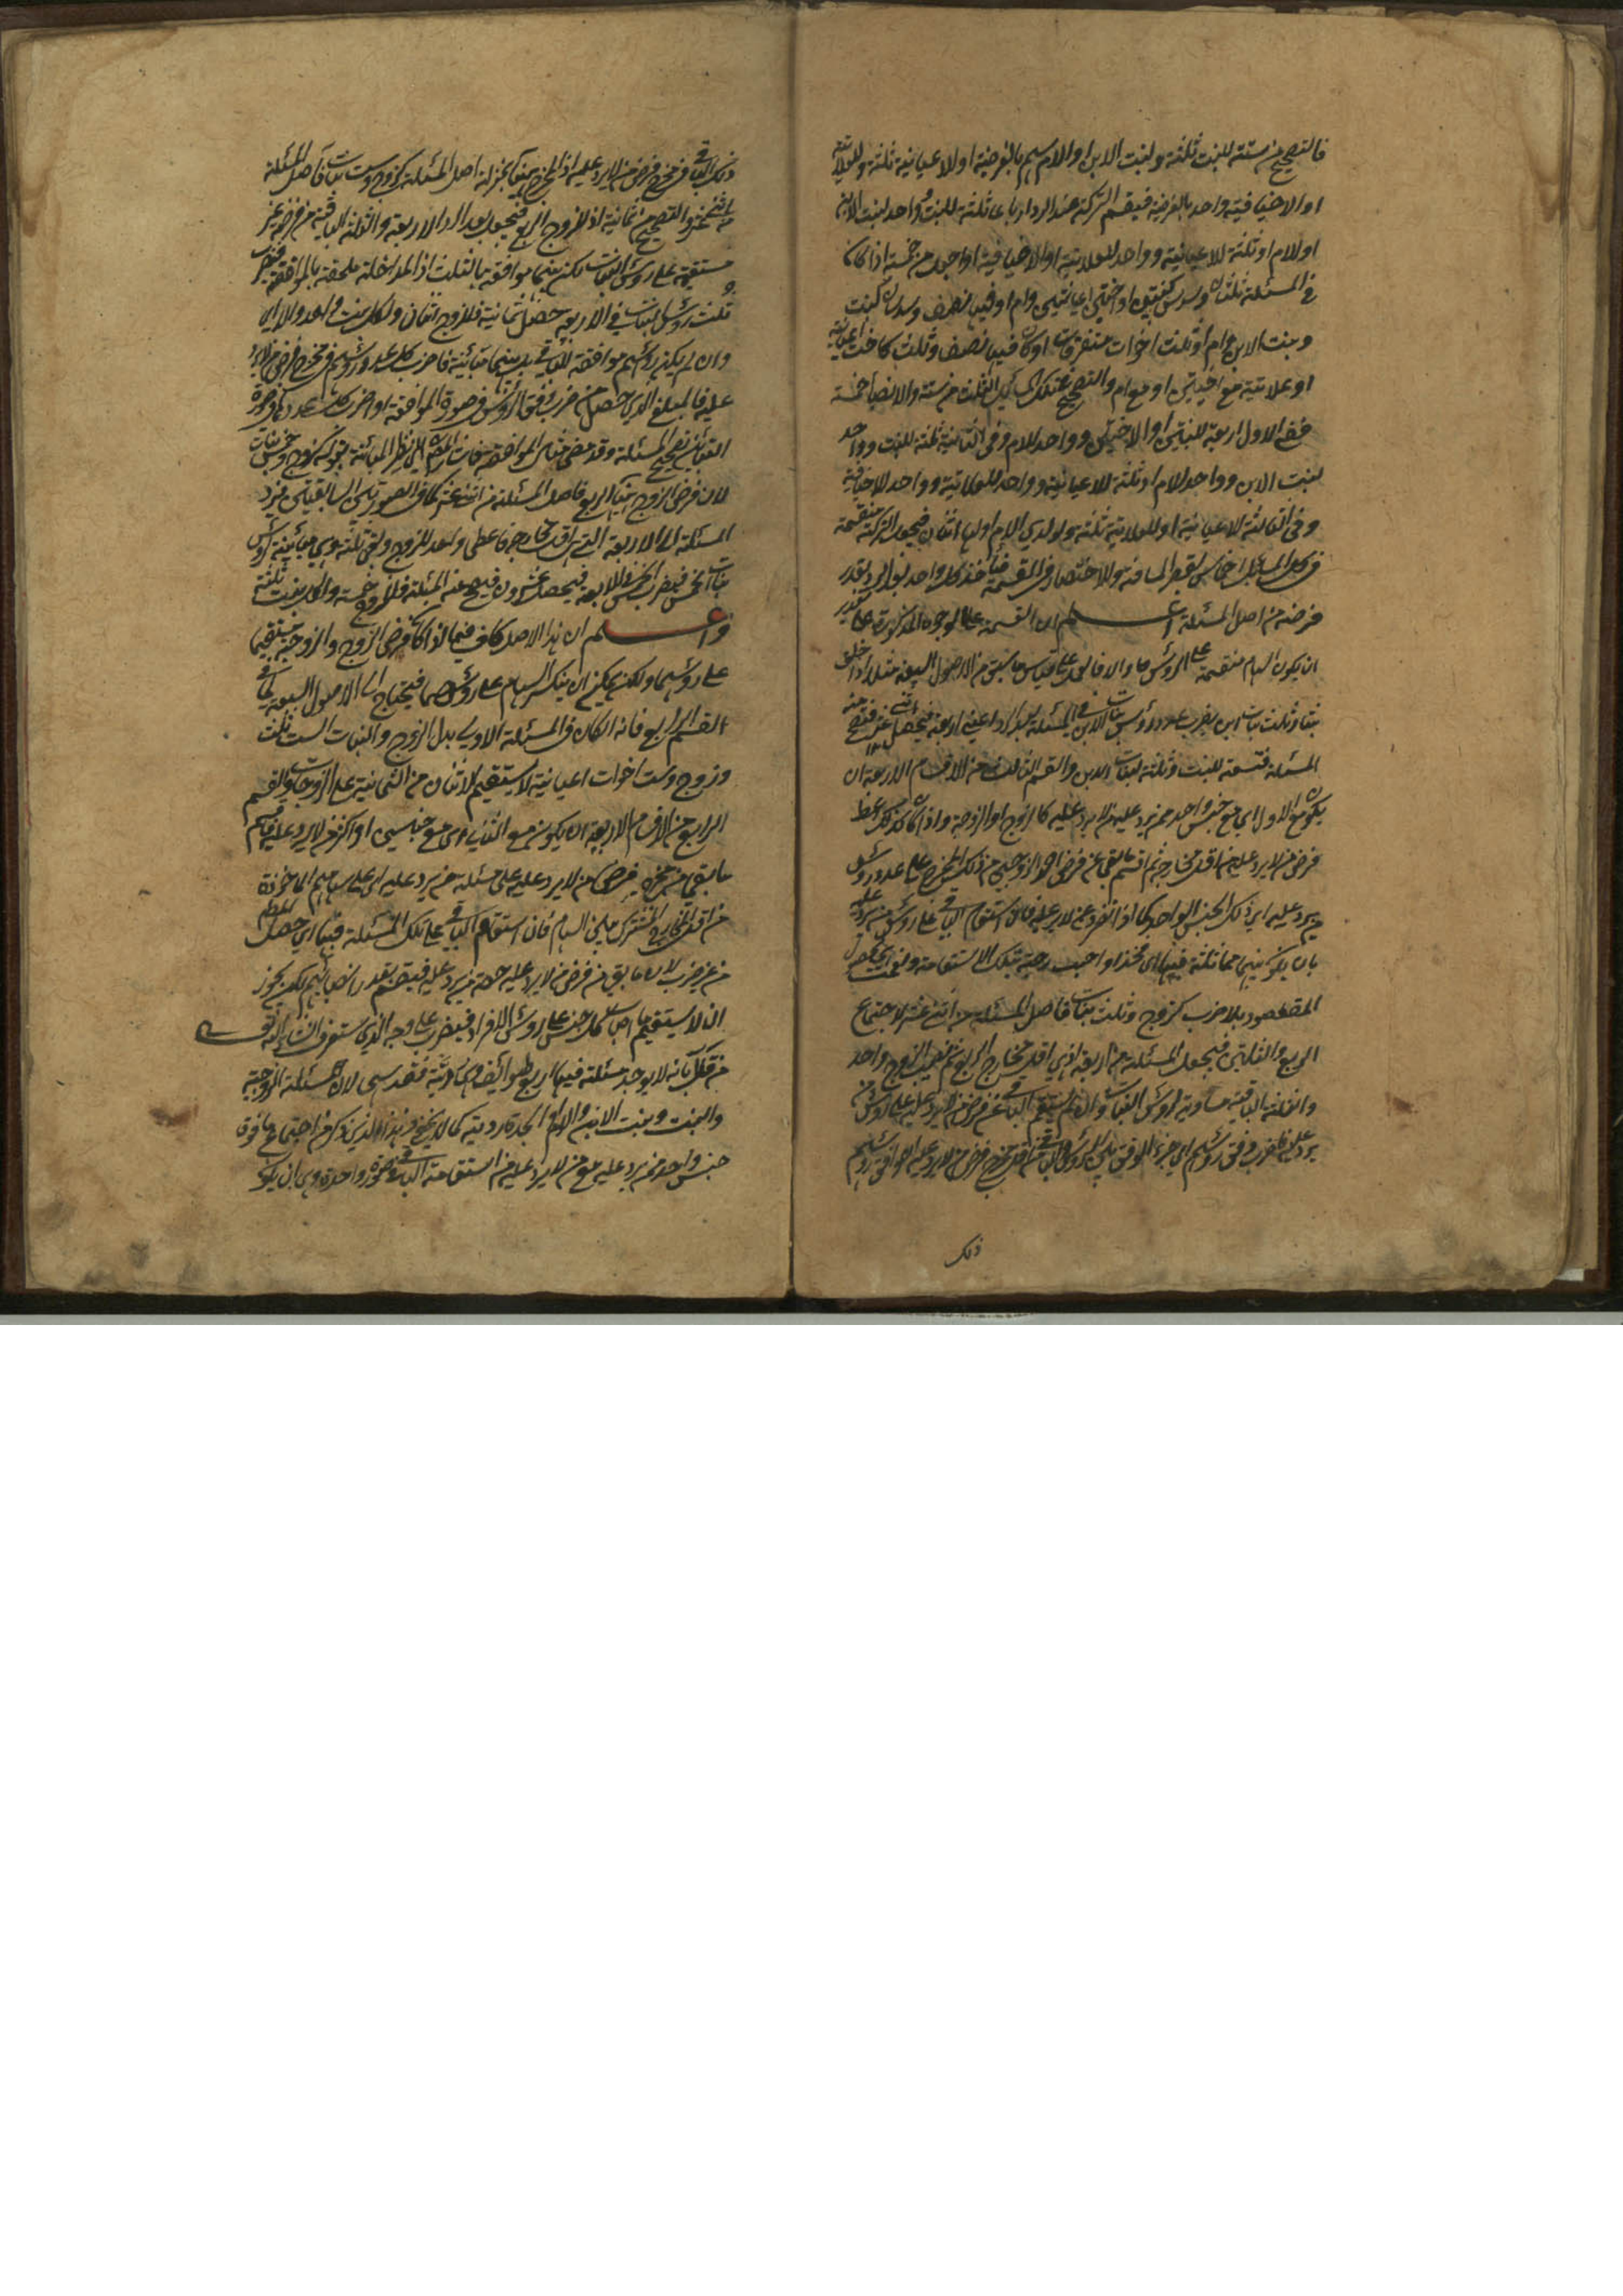 فالتصحيح من ستة للبنت ثلثة ولبنت الابن او الام سهم بالفرضية او لاعيانية ثلثة وللعلاتية
او الاخيافية واحد بالفرضية فيقسم التركة عند الرد ارباعا ثلثة للبنت وواحد لبنت الابن
او للام او ثلثة للاعيانية وواحد للعلاتية او الاخيافية او اجعل من خمسة اذا كان
في المسئلة ثلثان وسدس كبنتين او اختين اعيانيتين وام او فيها نصف وسدسان كبنت
وبنت الابن وام او ثلث اخوات متفرقات او كان فيها نصف وثلث كاخت اعيانية
او علاتية مع اختين او مع ام والتصحيح عند تلك المسائل الثلث من ستة والانصباء خمسة
ففي الاول اربعة للبنتين او الاختين وواحد للام وفي الثانية ثلثة للبنت وواحد
لبنت الابن وواحد للام او ثلثة للاعيانية وواحد للعلاتية وواحد للاخيافية
وفي الثالثة للاعيانية او للعلاتية ثلثة ولولدي الام او لها اثنان فيجعل التركة منقسمة
في كل المسائل اخماسا لقصر المسافة والاختصار في القسمة فياخذ كل واحد بقدر
فرضه من اصل المسئلة اعلم ان القسمة على الوجوه المذكورة على تقدير
ان يكون السهام منقسمة على الرؤس والا فالعمل على قياس ما سبق من الاصول السبعة مثلا اذا خلف
بنتا وثلث بنات ابن يضرب عدد رؤس بنات الابن في المسئلة اربعة فيحصل اثني عشر فتصح منه
المسئلة فتسعة للبنت وثلثة لبنات الابن والقسم الثالث من الاقسام الاربعة ان
يكون مع الاول اي مع جنس واحد ممن يرد عليه من لا يرد عليه كالزوج او الزوجة واذا كان كذلك فاعط
فرض من لا يرد عليه من اقل مخارجه ثم اقسم ما بقي عن فرض احد الزوجين من ذلك المخرج على عدد رؤس
من يرد عليه اي ذلك الجنس الواحد كما اذا انفرد عن من لا يرد عليه فان استقام الباقي على رؤس من يرد عليه
بان يكون بينهما مماثلة فبها
المقصود بلا ضرب كزوج وثلث بنات فاصل المسئلة من اثني عشر لاجتماع
الربع والثلثين فيجعل المسئلة من اربعة اذ هي اقل مخارج الربع ثم نصيب الزوج واحد
والثلثة الباقية مساوية لرؤس البنات وان لم يستقم الباقي عن فرض من لا يرد عليه على رؤس من
يرد عليه فاضرب وفق رؤسهم اي جزء الوفق من الرؤس في اقل مخرج فرض من لا يرد عليه ان وافق رؤسهم
ذلك
ذلك الباقي من مخرج فرض من لا يرد عليه اذ المخرج ههنا بمنزلة اصل المسئلة كزوج وست بنات فاصل المسئلة
من اثني عشر والتصحيح من ثمانية اذ للزوج الربع فيجعل بعد الرد الاربعة والثلثة الباقية من فرضه غير
مستقيمة على رؤس البنات لكن بينهما موافقة بالثلث اذ المداخلة ملحقة بالموافقة فيضرب
ثلث رؤس البنات في الاربعة حصل ثمانية فللزوج اثنان ولكل بنت واحد والا اي
وان لم يكن رؤسهم موافقة للباقي بل بينهما مباينة فاضرب كل عدد رؤسهم في مخرج فرض من لا يرد
عليه فالمبلغ الذي حصل من ضرب وفق الرؤس في صورة الموافقة او ضرب كل العدد في صورة
التباين تصحيح المسئلة وقد مضى مثال الموافقة كزوج وخمس بنات
لان فرض الزوج ههنا الربع فاصل المسئلة من اثني عشر كما في الصورتين السابقتين يرد
المسئلة الى الاربعة التي هي اقل مخارجه فاعطي واحد للزوج وبقي ثلثة وهي مباينة لرؤس
البنات الخمس فيضرب الخمس في الاربعة فيحصل عشرون فيصح منه المسئلة فللزوج خمسة ولكل بنت ثلثة
واعلم ان هذا الاصل كاف فيما اذا كان فرض الزوج والزوجة مستقيما
على رؤسهما ولكن يمكن ان ينكسر السهام على رؤسهما فيحتاج الى الاصول السبعة كما في
القسم الرابع فانه اذا كان في المسئلة الاولى بدل الزوج والبنات الست ثلث
وزوج وست اخوات اعيانية لا يستقيم الاثنان من الثمانية على الزوجات والقسم
الرابع من الاقسام الاربعة ان يكون مع الثاني اي مع جنسين او اكثر من لا يرد عليه فاقسم
ما بقي من مخرج فرض من لا يرد عليه على مسئلة من يرد عليه اي على سهامهم الماخوذة
من اقل المخارج المشترك بين السهام فان استقام الباقي على تلك المسئلة فبها اي حصل المطلوب
من غير ضرب لان ما بقي من فرض من لا يرد عليه حصة من يرد عليه فيقسم بقدر انصبائهم لكن يجوز
ان لا يستقيم ما اصاب كل جنس على رؤس الافراد فيضرب على وجه الذي ستعرف ان شاء الله تعالى
من قال بانه لا يوجد مسئلة فيها اربع طوائف وهي ردية فقد سهى لان مسئلة الزوجية
والبنت وبنت الابن والام او الجدة ردية كما لا يخفى وهذا الذي ذكر من اجتماع ما فوق
جنس واحد ممن يرد عليه مع من لا يرد عليه من استقامة الباقي في صورة واحدة وهي ان يكون